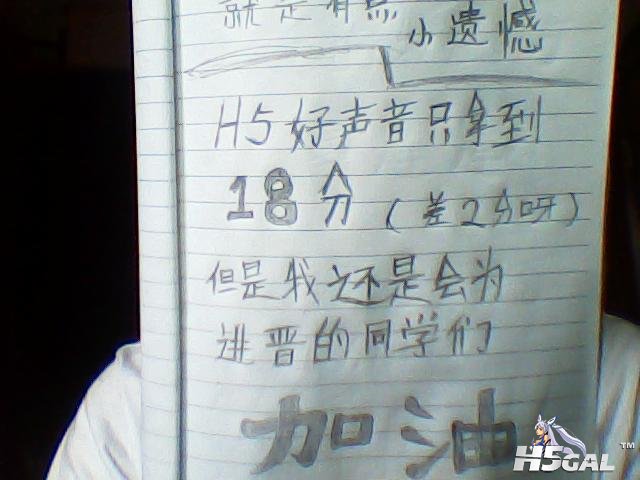 就是有点
小遗憾
H5好声音只拿到
18分(差2分呀)
但是我还是会为
进晋的同学们
加油
H5GAL™